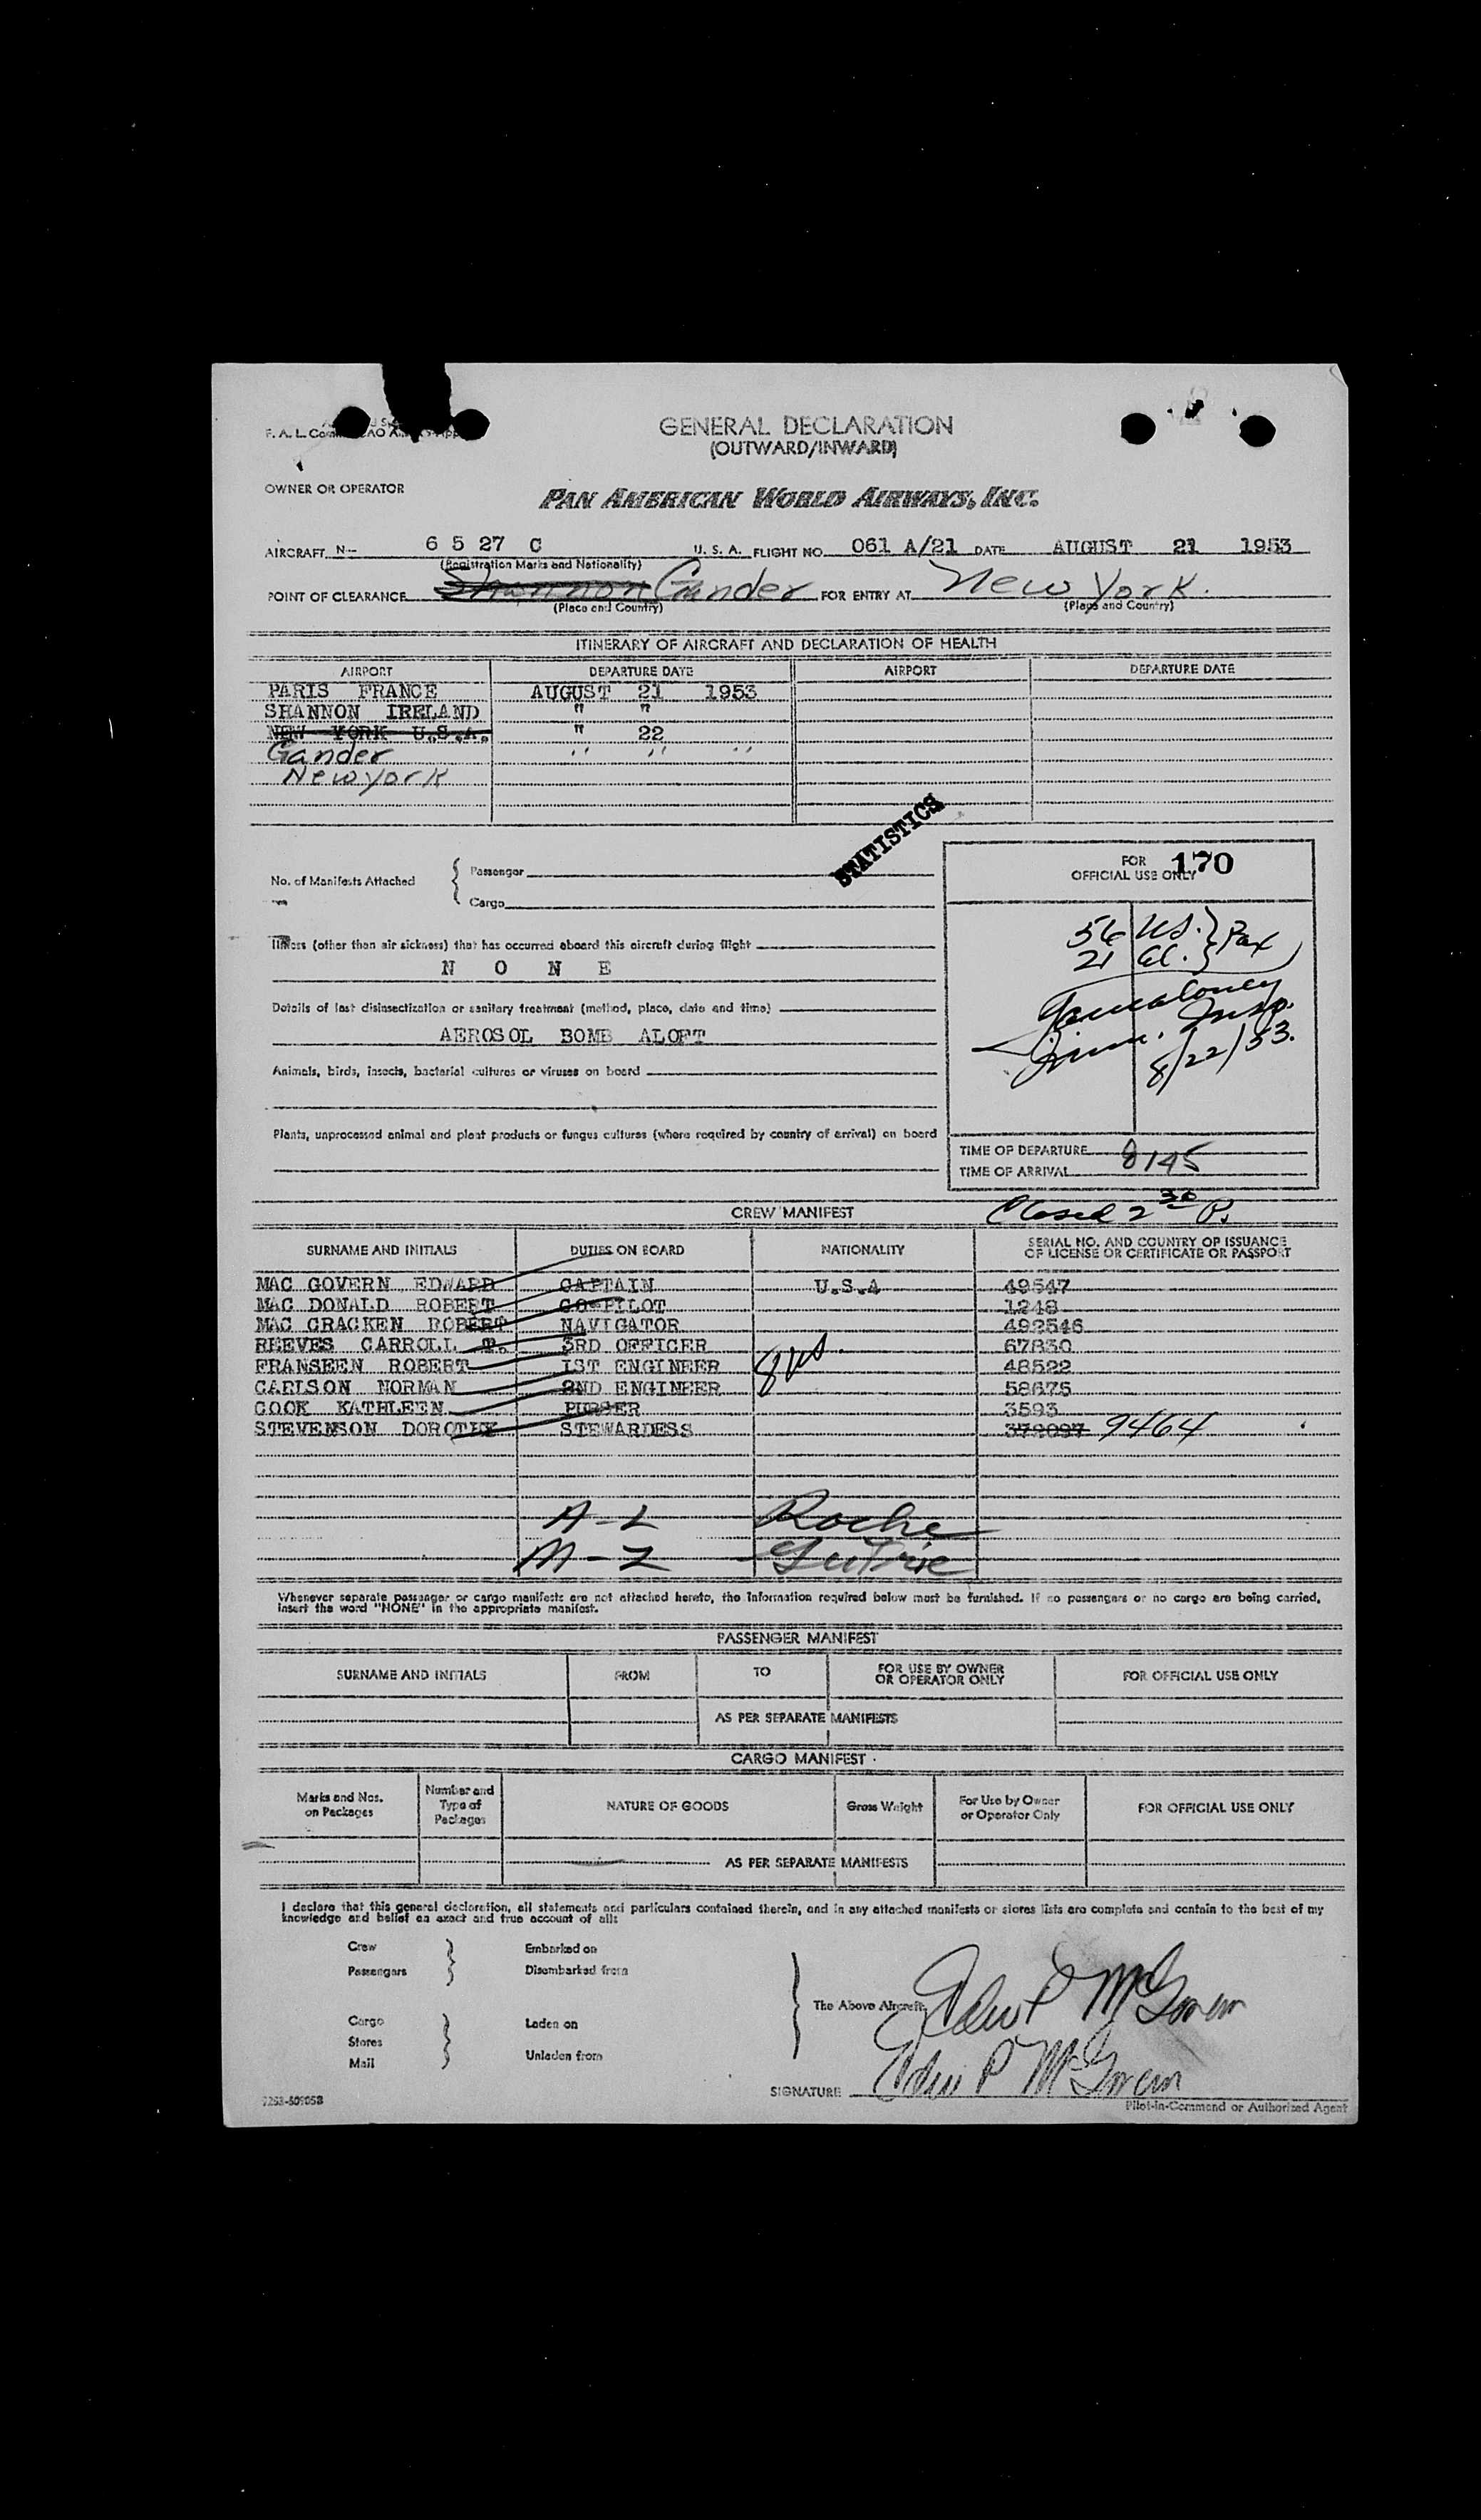 GENERAL DECLARATION
(OUTWARD/INWARD)
OWNER OR OPERATOR
PAN AMERICAN WORLD AIRWAYS, INC.
AIRCRAFT N- 6 5 27 C U. S. A. FLIGHT NO. 061 A/21 DATE AUGUST 21 1953
(Registration Marks and Nationality)
POINT OF CLEARANCE Shannon Gander FOR ENTRY AT New York.
(Place and Country) (Place and Country)
ITINERARY OF AIRCRAFT AND DECLARATION OF HEALTH
AIRPORT DEPARTURE DATE AIRPORT DEPARTURE DATE
PARIS FRANCE AUGUST 21 1953
SHANNON IRELAND " "
NEW YORK U.S.A. " 22
Gander " " "
New York
STATISTICS
No. of Manifests Attached { Passenger
Cargo
FOR OFFICIAL USE ONLY 170
56 US. } Pax
21 Al. }
Imm. Insp.
8/22/53.
Illness (other than air sickness) that has occurred aboard this aircraft during flight
N O N E
Details of last disinsectization or sanitary treatment (method, place, date and time)
AEROSOL BOMB ALOFT
Animals, birds, insects, bacterial cultures or viruses on board
Plants, unprocessed animal and plant products or fungus cultures (where required by country of arrival) on board
TIME OF DEPARTURE
TIME OF ARRIVAL 8145
Closed 2 30 P.
CREW MANIFEST
SURNAME AND INITIALS DUTIES ON BOARD NATIONALITY SERIAL NO. AND COUNTRY OF ISSUANCE OF LICENSE OR CERTIFICATE OR PASSPORT
MAC GOVERN EDWARD CAPTAIN U.S.A 49547
MAC DONALD ROBERT CO-PILOT 1248
MAC CRACKEN ROBERT NAVIGATOR 492546
REEVES CARROLL T. 3RD OFFICER 67830
FRANSEEN ROBERT 1ST ENGINEER 8 us. 48522
CARLSON NORMAN 2ND ENGINEER 58675
COOK KATHLEEN PURSER 3593
STEVENSON DOROTHY STEWARDESS 372097 9464
A-L Roche
M-Z Gutrie
Whenever separate passenger or cargo manifests are not attached hereto, the information required below must be furnished. If no passengers or no cargo are being carried,
insert the word "NONE" in the appropriate manifest.
PASSENGER MANIFEST
SURNAME AND INITIALS FROM TO FOR USE BY OWNER OR OPERATOR ONLY FOR OFFICIAL USE ONLY
AS PER SEPARATE MANIFESTS
CARGO MANIFEST
Marks and Nos. on Packages Number and Type of Packages NATURE OF GOODS Gross Weight For Use by Owner or Operator Only FOR OFFICIAL USE ONLY
AS PER SEPARATE MANIFESTS
I declare that this general declaration, all statements and particulars contained therein, and in any attached manifests or stores lists are complete and contain to the best of my
knowledge and belief an exact and true account of all:
Crew Embarked on
Passengers Disembarked from
The Above Aircraft. Edw P McGovern
Cargo Laden on
Stores
Mail Unladen from
SIGNATURE Edw P McGovern
Pilot-in-Command or Authorized Agent